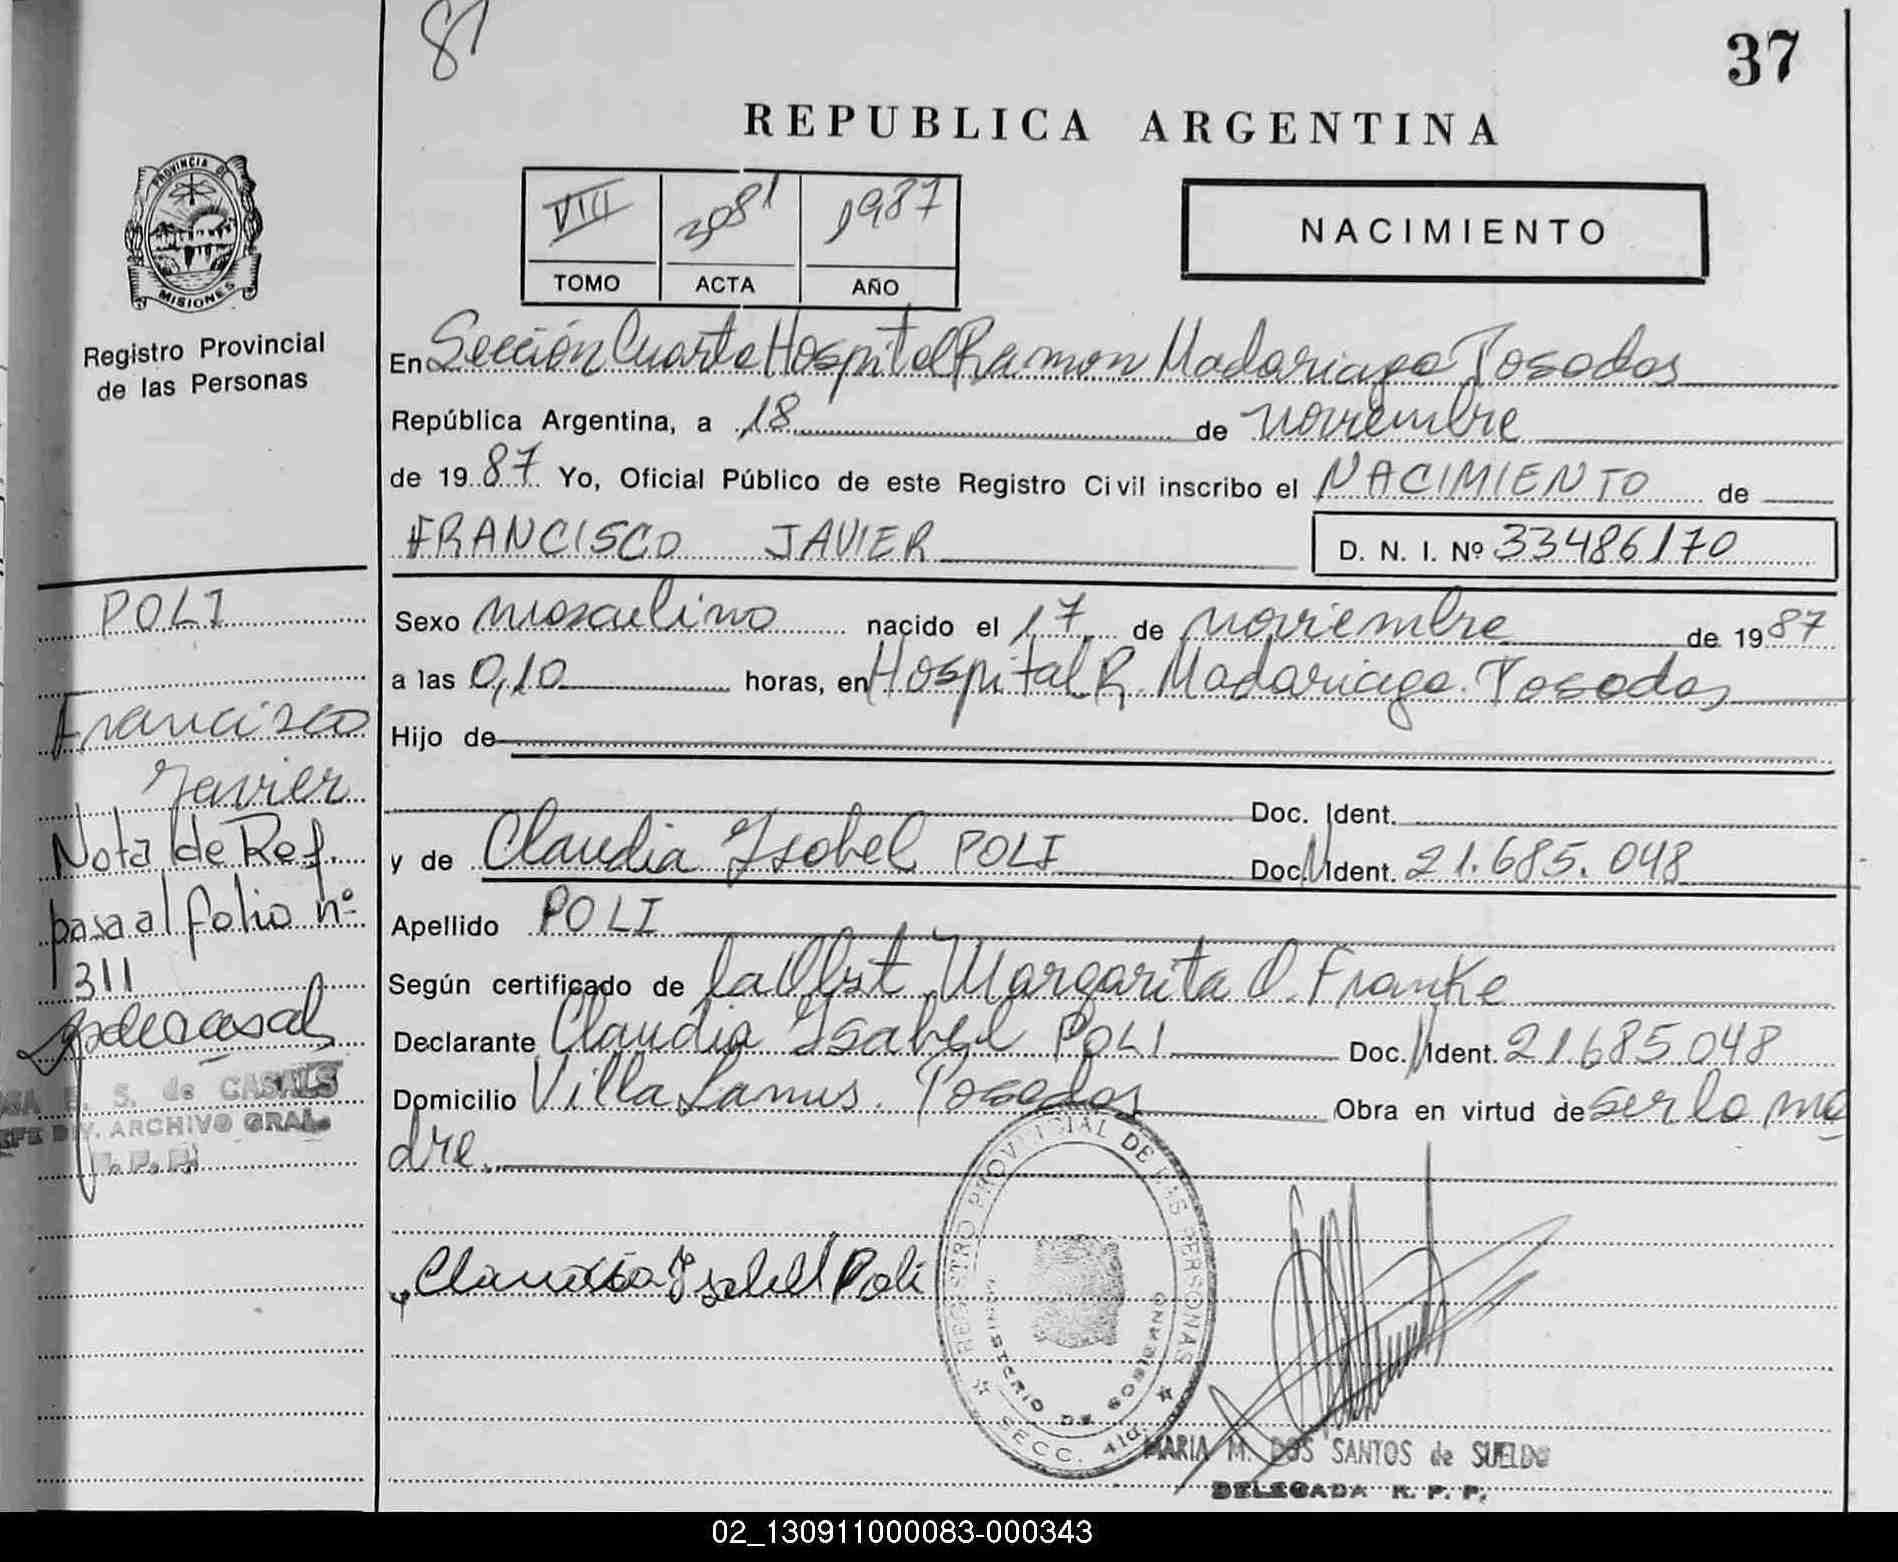 81
37
REPUBLICA ARGENTINA
VIII 3081 1987
TOMO ACTA AÑO
NACIMIENTO
PROVINCIA DE
MISIONES
Registro Provincial
de las Personas
En Sección Cuarta Hospital Ramon Madariaga Posadas
República Argentina, a 18 de noviembre
de 19 87 Yo, Oficial Público de este Registro Civil inscribo el NACIMIENTO de
FRANCISCO JAVIER D. N. I. Nº 33486170
Sexo masculino nacido el 17 de noviembre de 19 87
a las 0,10 horas, en Hospital R. Madariaga. Posadas
Hijo de
Doc. Ident.
y de Claudia Isabel POLI Doc. N Ident. 21.685.048
Apellido POLI
Según certificado de la Obst. Margarita O. Franke
Declarante Claudia Isabel POLI Doc. N Ident. 21685.048
Domicilio Villa Lanus. Posadas Obra en virtud de ser la ma
dre.
POLI
Francisco
Javier
Nota de Ref.
pasa al folio nº
311
S. de CASALS
DIV. ARCHIVO GRAL.
R. P. P.
Claudia Isabel Poli
REGISTRO PROVINCIAL DE LAS PERSONAS
MINISTERIO DE GOBIERNO
SECC. 4ta.
MARIA M. DOS SANTOS de SUELDO
DELEGADA R. P. P.
02_130911000083-000343